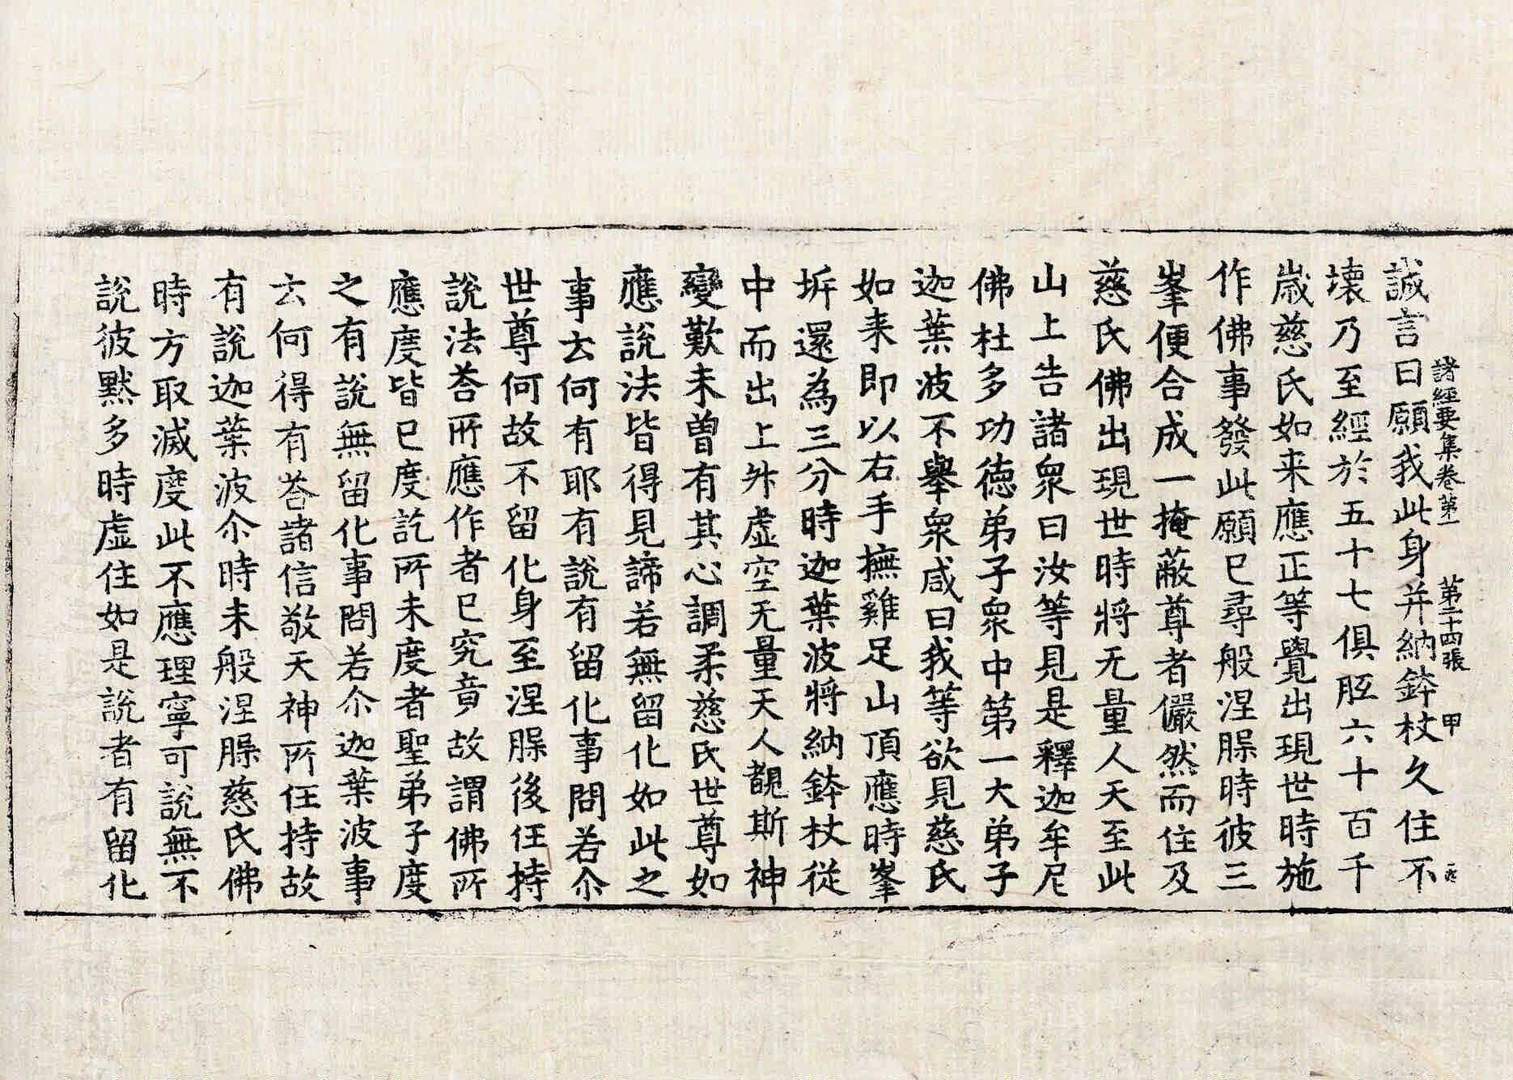 諸經要集卷第一 第二十四張 甲
誠言曰願我此身并納鉢杖久住不
壞乃至經於五十七俱胝六十百千
歲慈氏如来應正等覺出現世時施
作佛事發此願已尋般涅脲時彼三
峯便合成一掩蔽尊者儼然而住及
慈氏佛出現世時將无量人天至此
山上告諸衆曰汝等見是釋迦牟尼
佛杜多功德弟子衆中第一大弟子
迦葉波不舉衆咸曰我等欲見慈氏
如来即以右手撫雞足山頂應時峯
坼還為三分時迦葉波將納鉢杖從
中而出上昇虛空无量天人覩斯神
變歎未曾有其心調柔慈氏世尊如
應說法皆得見諦若無留化如此之
事云何有耶有說有留化事問若尒
世尊何故不留化身至涅脲後任持
說法荅所應作者已究竟故謂佛所
應度皆已度訖所未度者聖弟子度
之有說無留化事問若尒迦葉波事
云何得有荅諸信敬天神所任持故
有說迦葉波尒時未般涅脲慈氏佛
時方取滅度此不應理寧可說無不
說彼黙多時虛住如是說者有留化